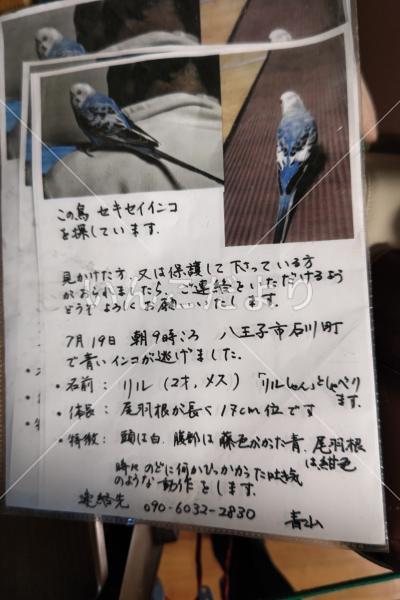 この鳥 セキセイインコ
を探しています.
見かけた方、又は保護して下さっている方
がおられましたら、ご連絡をいただけるよう
どうぞよろしくお願いいたします.
7月19日 朝9時ごろ 八王子市石川町
で青いインコが逃げました.
・名前: リル (2才.メス) 「リルしゃん」としゃべり
ます.
・体長: 尾羽根が長く17cm位です
・特徴: 頭は白.腹部は藤色がかった青.尾羽根
は紺色
時々のどに何かひっかかった
のような動作をします.
連絡先 090-6032-2830 青山